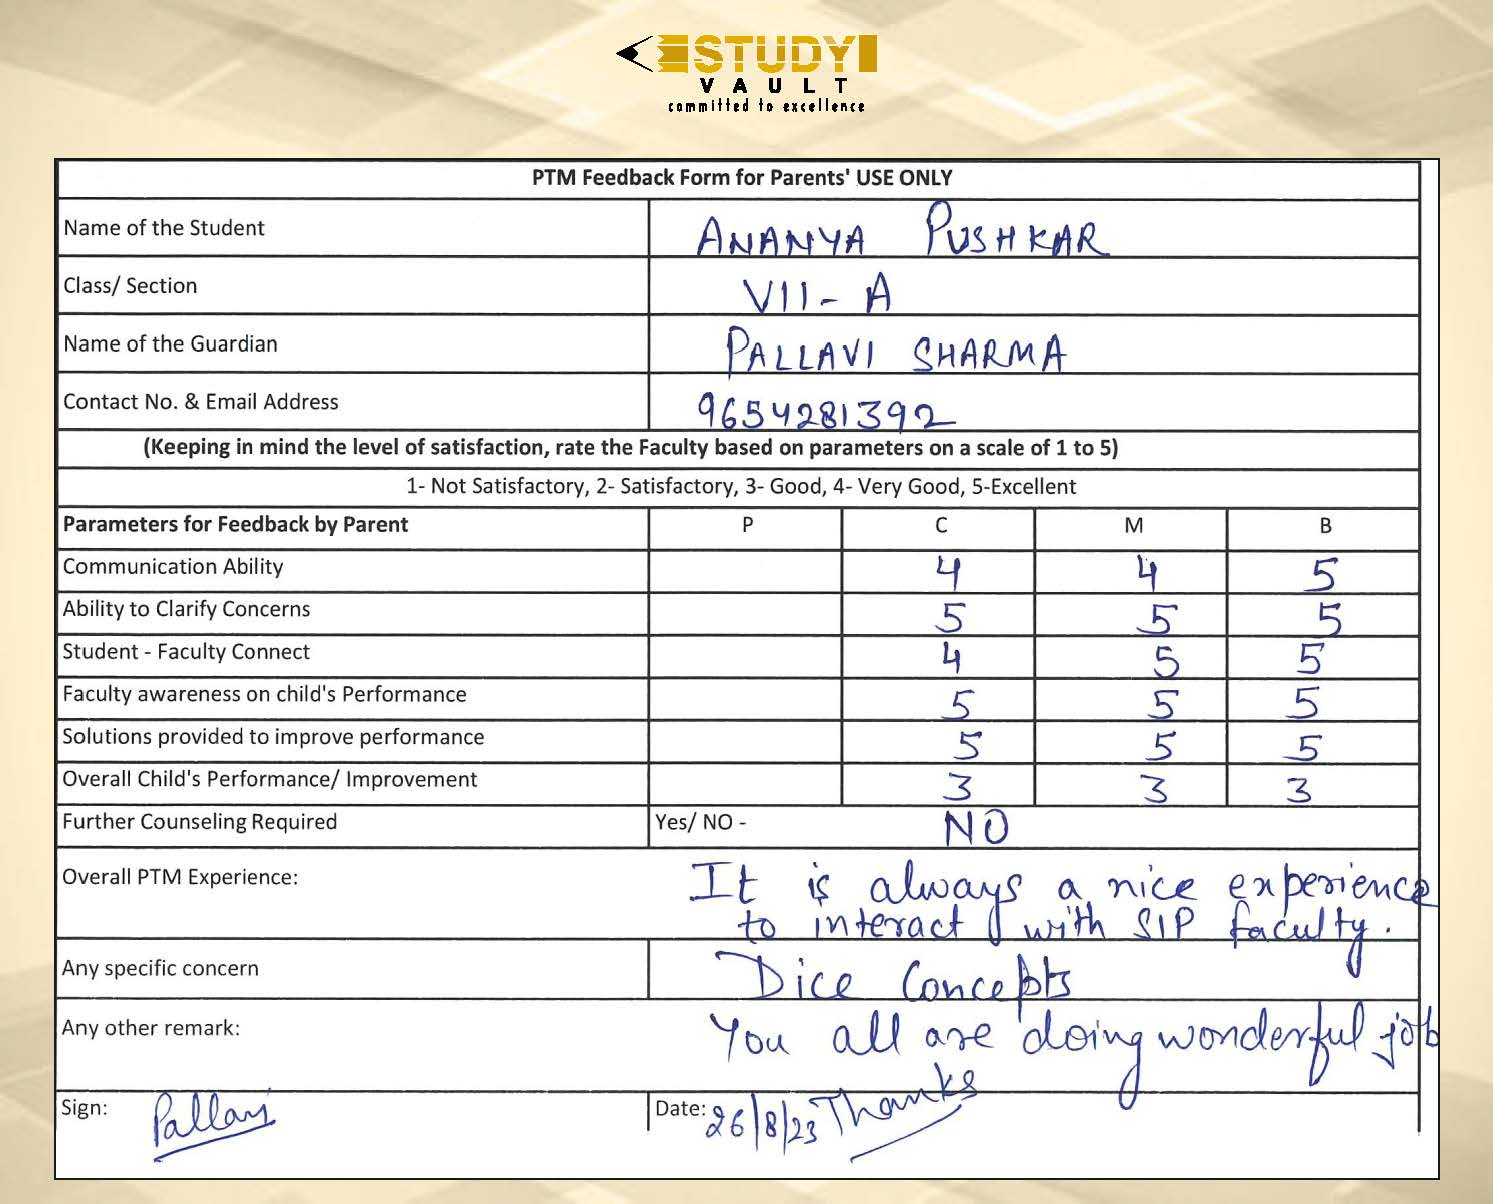 STUDY
VAULT
committed to excellence
PTM Feedback Form for Parents' USE ONLY
Name of the Student ANANYA PUSHKAR
Class/ Section VII - A
Name of the Guardian PALLAVI SHARMA
Contact No. & Email Address 9654281392
(Keeping in mind the level of satisfaction, rate the Faculty based on parameters on a scale of 1 to 5)
1- Not Satisfactory, 2- Satisfactory, 3- Good, 4- Very Good, 5-Excellent
Parameters for Feedback by Parent P C M B
Communication Ability 4 4 5
Ability to Clarify Concerns 5 5 5
Student - Faculty Connect 4 5 5
Faculty awareness on child's Performance 5 5 5
Solutions provided to improve performance 5 5 5
Overall Child's Performance/ Improvement 3 3 3
Further Counseling Required Yes/ NO - NO
Overall PTM Experience: It is always a nice experience
to interact with SIP faculty.
Any specific concern Dice Concepts
Any other remark: You all are doing wonderful job
Sign: Pallavi Date: 26/8/23 Thanks